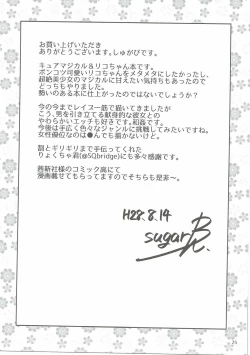 お買い上げいただき
ありがとうございます。しゅがびです。
キュアマジカル&リコちゃん本です。
ポンコツ可愛いリコちゃんをメタメタにしたかったし、
超絶美少女のマジカルに甘えたい気持ちもあったので
どっちもやりました。
勢いのある本に仕上がったのではないでしょうか?
今の今までレイプ一筋で描いてきましたが
こう、男を引き立てる献身的な彼女との
やわらかいエッチも好きです。和姦です。
今後は手広く色々なジャンルに挑戦してみたいですね。
女性優位なのは●んでも描かないけど。
割とギリギリまで手伝ってくれた
りょくちゃ君(@SQbridge)にも多々感謝です。
茜新社様のコミック高にて
漫画載せてもらってますのでそちらも是非〜。
H28.8.14
sugar
25